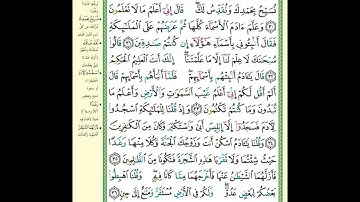 نُسَبِّحُ بِحَمْدِكَ وَنُقَدِّسُ لَكَ ۖ قَالَ إِنِّي أَعْلَمُ مَا لَا تَعْلَمُونَ
﴿٣٠﴾ وَعَلَّمَ ءَادَمَ الْأَسْمَاءَ كُلَّهَا ثُمَّ عَرَضَهُمْ عَلَى الْمَلَٰئِكَةِ
فَقَالَ أَنْبِئُونِي بِأَسْمَاءِ هَٰؤُلَاءِ إِنْ كُنْتُمْ صَٰدِقِينَ ﴿٣١﴾ قَالُوا
سُبْحَٰنَكَ لَا عِلْمَ لَنَا إِلَّا مَا عَلَّمْتَنَا ۖ إِنَّكَ أَنْتَ الْعَلِيمُ الْحَكِيمُ
﴿٣٢﴾ قَالَ يَٰٓـَٔادَمُ أَنْبِئْهُمْ بِأَسْمَائِهِمْ ۖ فَلَمَّا أَنْبَأَهُمْ بِأَسْمَائِهِمْ قَالَ
أَلَمْ أَقُلْ لَكُمْ إِنِّي أَعْلَمُ غَيْبَ السَّمَٰوَٰتِ وَالْأَرْضِ وَأَعْلَمُ مَا
تُبْدُونَ وَمَا كُنْتُمْ تَكْتُمُونَ ﴿٣٣﴾ وَإِذْ قُلْنَا لِلْمَلَٰئِكَةِ اسْجُدُوا
لِءَادَمَ فَسَجَدُوا إِلَّا إِبْلِيسَ أَبَىٰ وَاسْتَكْبَرَ وَكَانَ مِنَ الْكَٰفِرِينَ
﴿٣٤﴾ وَقُلْنَا يَٰٓـَٔادَمُ اسْكُنْ أَنْتَ وَزَوْجُكَ الْجَنَّةَ وَكُلَا مِنْهَا رَغَدًا
حَيْثُ شِئْتُمَا وَلَا تَقْرَبَا هَٰذِهِ الشَّجَرَةَ فَتَكُونَا مِنَ الظَّٰلِمِينَ ﴿٣٥﴾
فَأَزَلَّهُمَا الشَّيْطَٰنُ عَنْهَا فَأَخْرَجَهُمَا مِمَّا كَانَا فِيهِ ۖ وَقُلْنَا اهْبِطُوا
بَعْضُكُمْ لِبَعْضٍ عَدُوٌّ ۖ وَلَكُمْ فِي الْأَرْضِ مُسْتَقَرٌّ وَمَتَٰعٌ إِلَىٰ حِينٍ